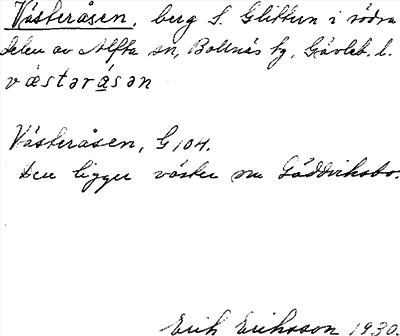 Västeråsen, berg S. Glittern i södra
delen av Alfta sn, Bollnäs tg, Gävleb. l.
västəråsən
Västeråsen, G 104.
Den ligger väster om Gäddviksbo.
Erik Eriksson 1930.